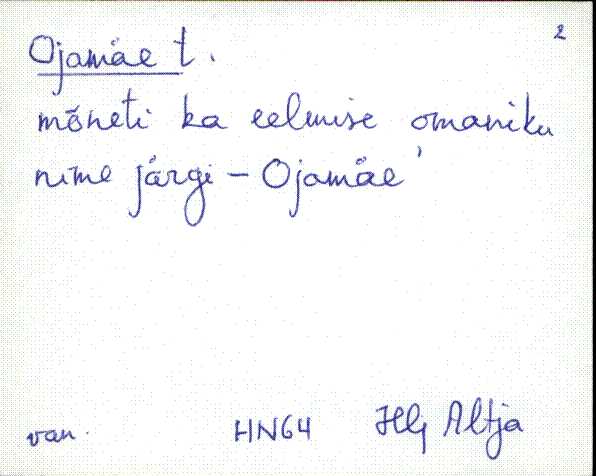 2
Ojamäe t.
mõneti ka eelmise omaniku
nime järgi – Ojamäe'
van. HN64 Hlj Altja